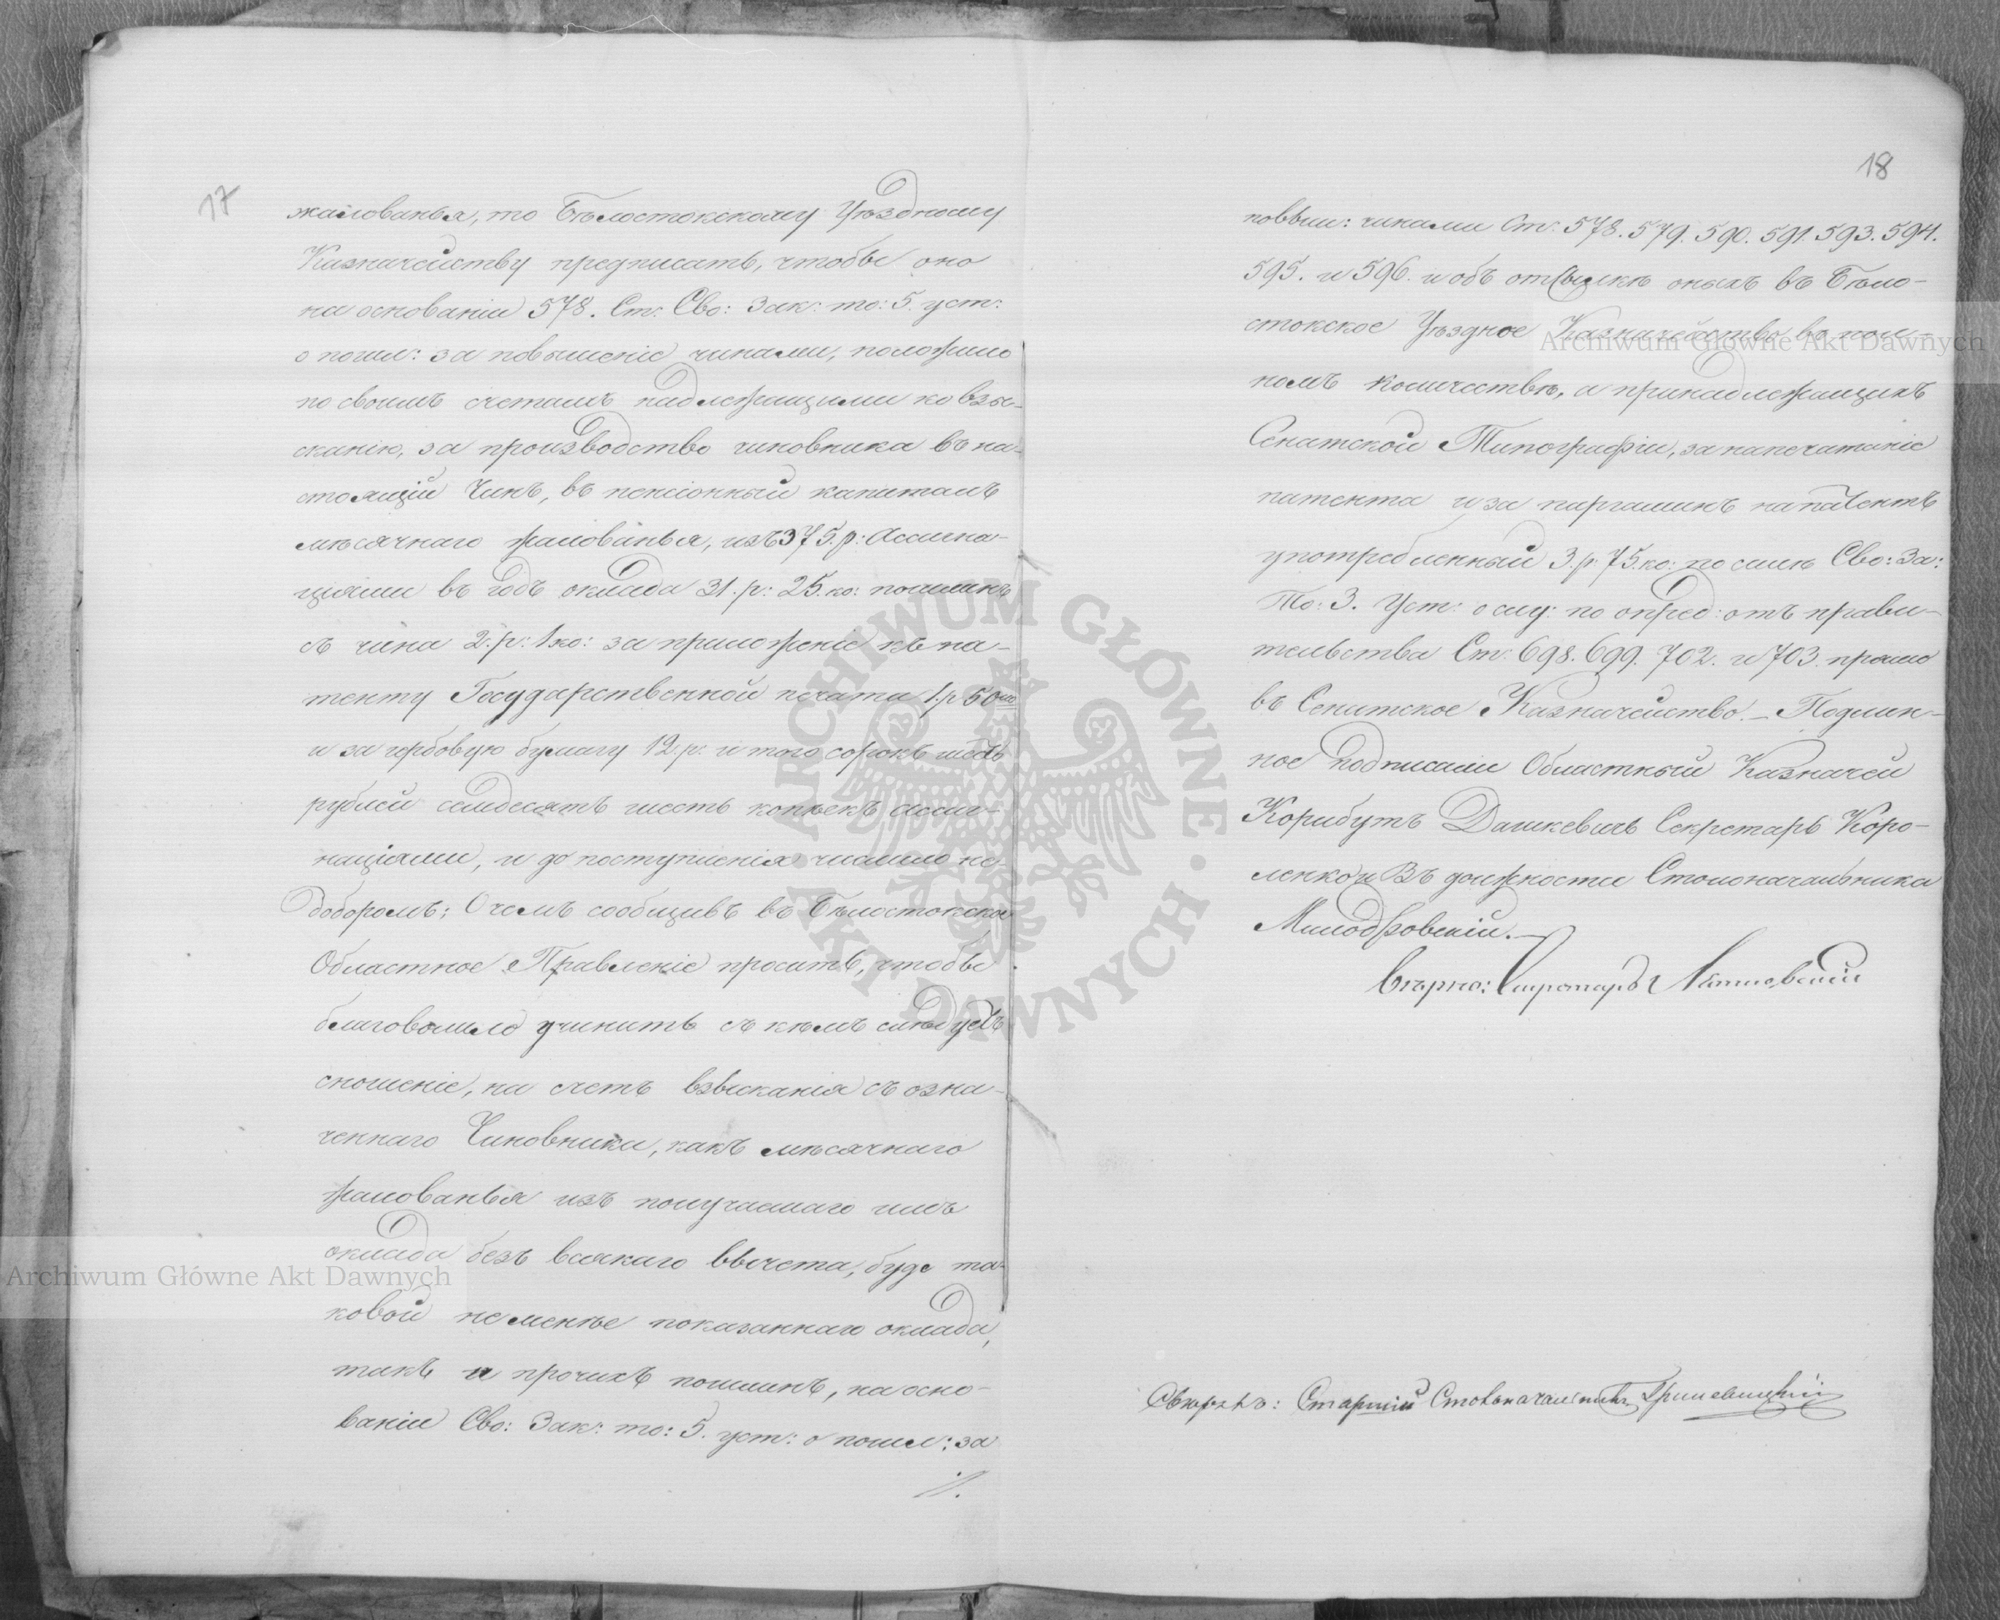 17
жалованья, то Бѣлостокскому Уѣздному
Казначейству предписать, чтобы оно
на основаніи 578. Ст. Сво: Зак: то: 5. уст:
о пошл: за повышеніе чинами, положило
по своимъ счетамъ надлежащими ко взы-
сканію, за производство чиновника въ на-
стоящій Чинъ, въ пенсіонный капиталъ
мѣсячнаго жалованья, изъ 375. р: Ассигна-
ціями въ годъ оклада 31. р: 25. ко: пошлинъ
съ чина 2. р: 1 ко: за приложеніе къ па-
тенту Государственной печати 1. р 50
и за гербовую бумагу 12. р. и того сорокъ шесть
рублей семдесятъ шесть копѣекъ ассиг-
націями, и до поступленія числило не-
доборомъ; О чемъ сообщивъ въ Бѣлостокское
Областное Правленіе просить, чтобы
благоволило учинить съ кѣмъ слѣдуетъ
сношеніе, на счетъ взысканія съ озна-
ченнаго Чиновника, какъ мѣсячнаго
жалованья изъ получаемаго имъ
оклада безъ всякаго вычета, буде та-
ковой не менѣе показаннаго оклада,
такъ и прочихъ пошлинъ, на осно-
ваніи Сво: Зак: то: 5. уст: о пошл: за
./.
18
повыш: чинами Ст: 578. 579. 590. 591. 593. 594.
595. и 596. и объ отсылкѣ оныхъ въ Бѣло-
стокское Уѣздное Казначейство въ пол-
номъ количествѣ, а принадлежащихъ
Сенатской Типографіи, за напечатаніе
патента и за паргаминъ на патентъ
употребленный 3. р. 75. ко: по силѣ Сво: За:
То: 3. Уст: о слу: по опред: отъ прави-
тельства Ст: 698. 699. 702. и 703. прямо
въ Сенатское Казначейство. — Подлин-
ное подписали Областный Казначей
Корибутъ Дашкевичъ Секретарь Коро-
ленко и Въ должности Столоначальника
Милодровскій. —
Вѣрно: Секретарь
Свѣрялъ: Старшій Столоначальникъ
Archiwum Główne Akt Dawnych
Archiwum Główne Akt Dawnych
ARCHIWUM GŁÓWNE · AKT DAWNYCH ·